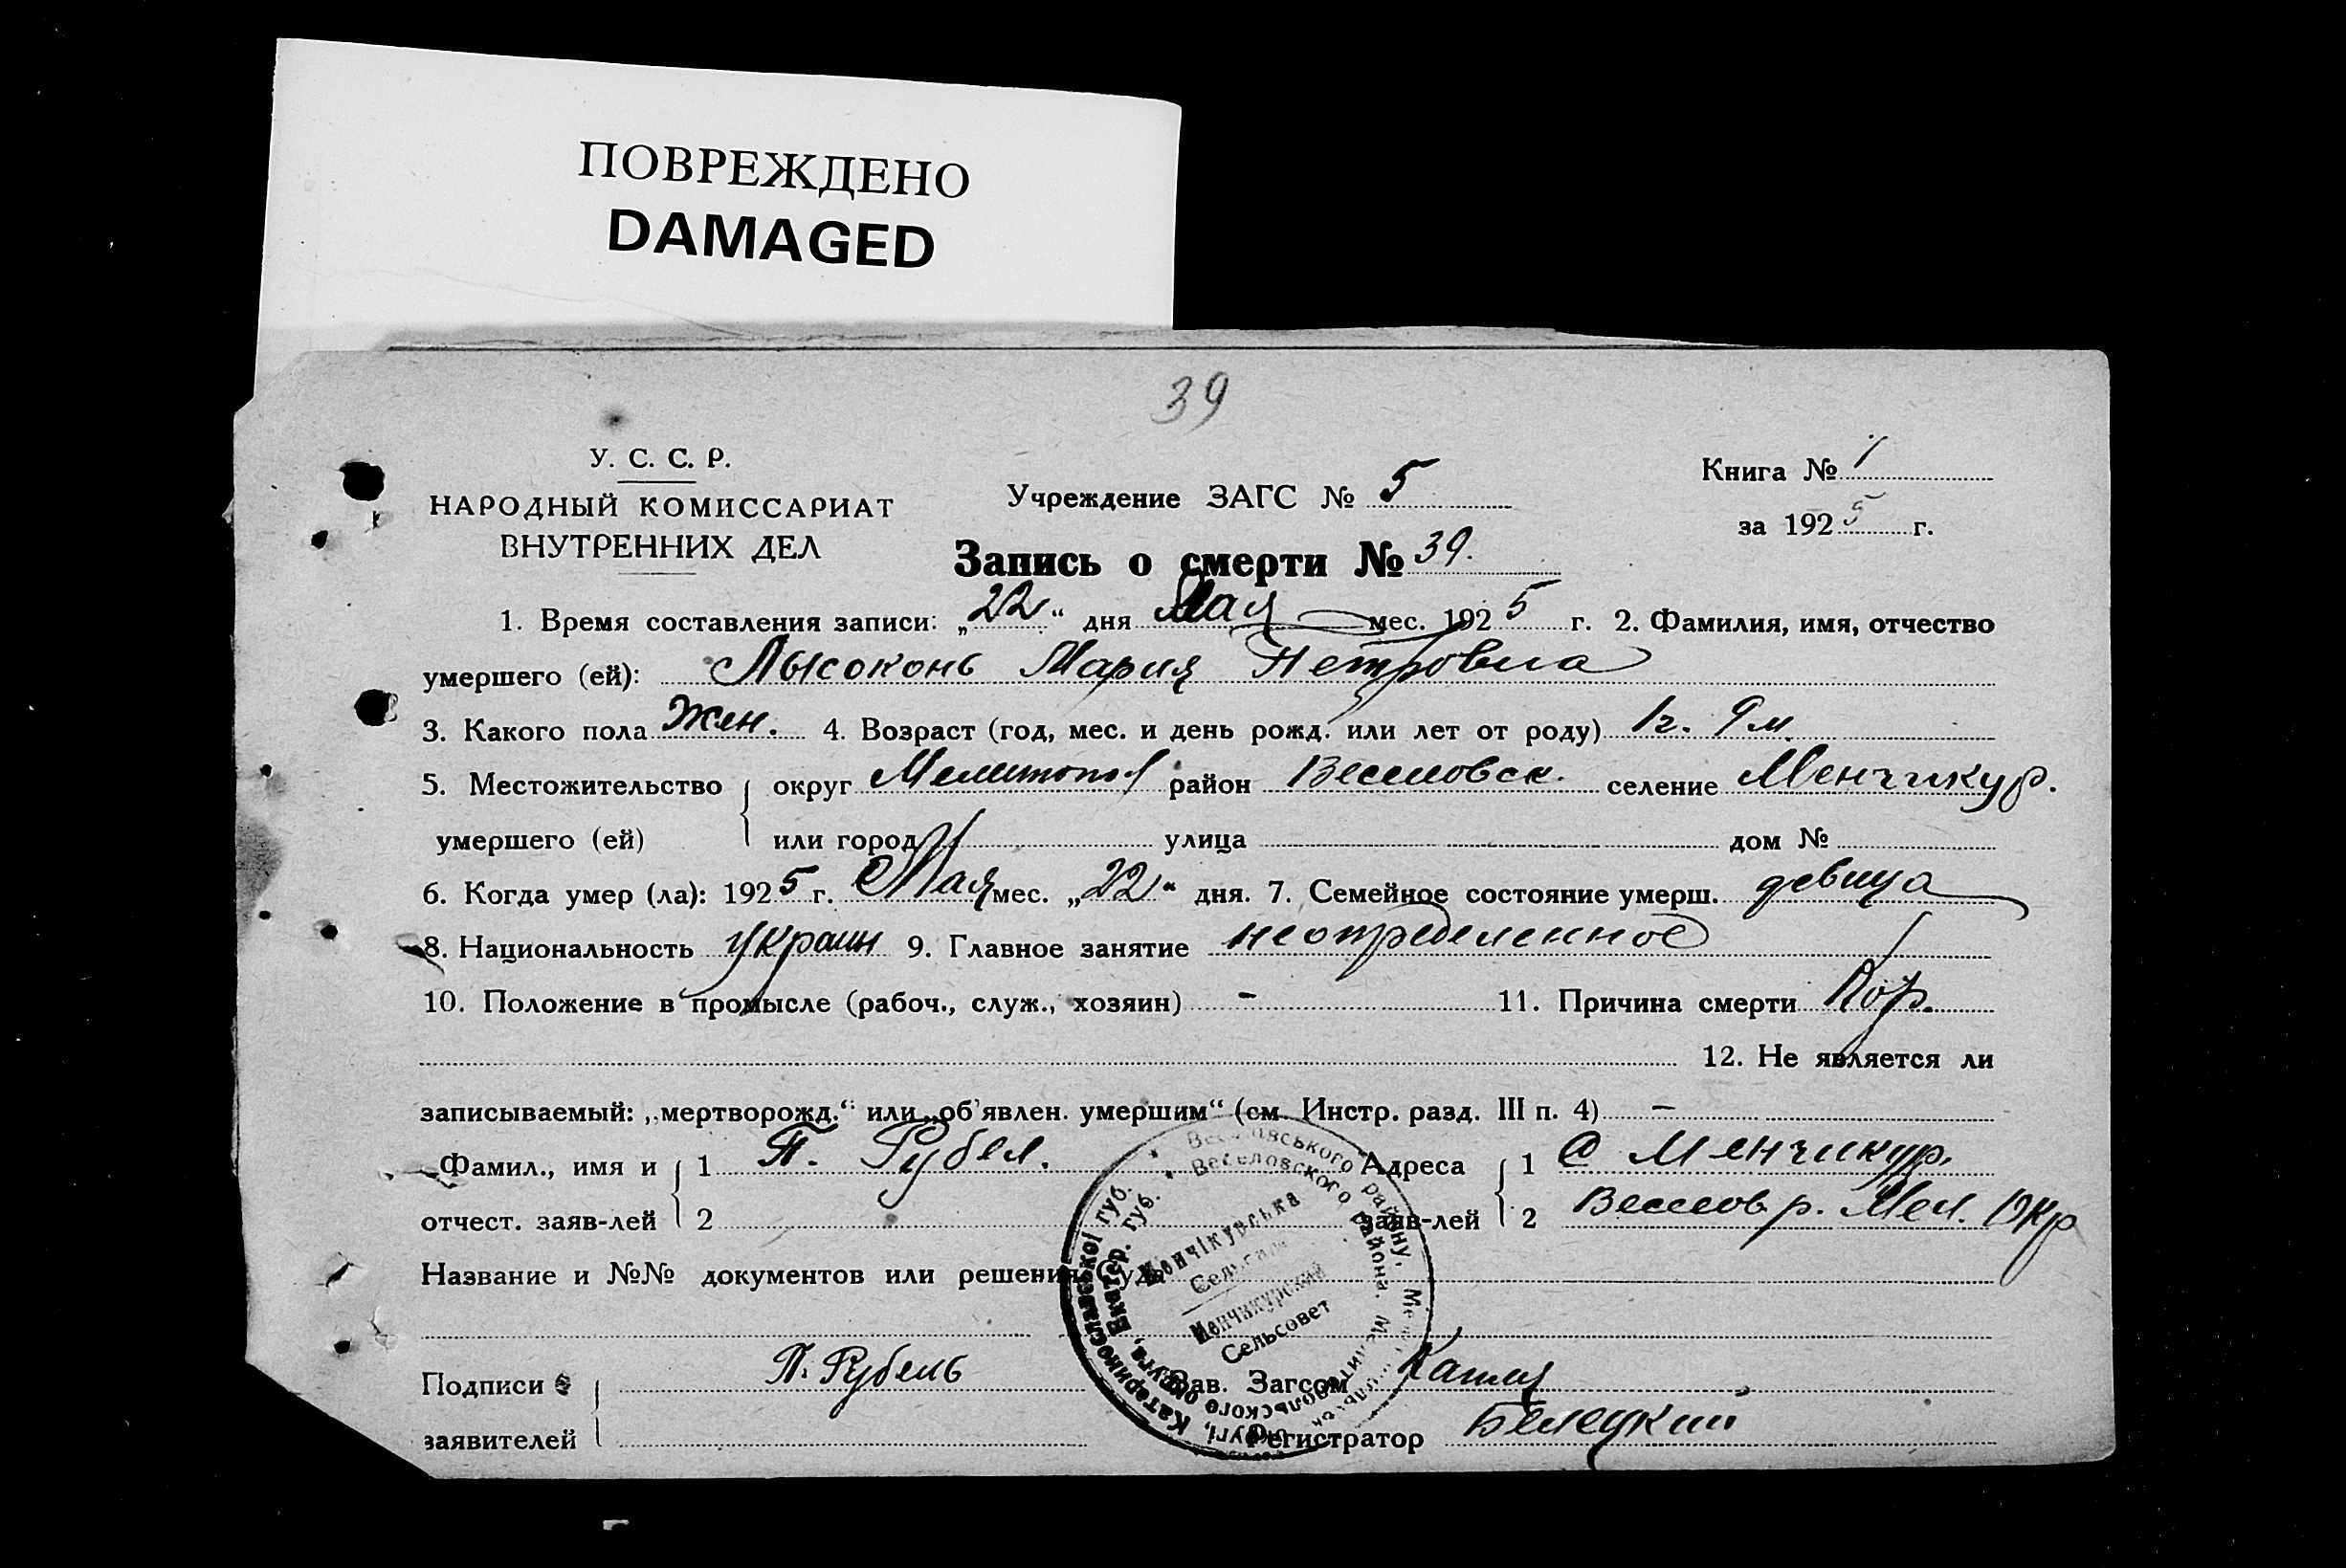 ПОВРЕЖДЕНО
DAMAGED
39
У. С. С. Р.
НАРОДНЫЙ КОМИССАРИАТ
ВНУТРЕННИХ ДЕЛ
Учреждение ЗАГС № 5
Книга № 1
за 1925 г.
Запись о смерти № 39.
1. Время составления записи: „22“ дня Мая мес. 1925 г. 2. Фамилия, имя, отчество
умершего (ей): Лысоконь Мария Петровна
3. Какого пола Жен. 4. Возраст (год, мес. и день рожд. или лет от роду) 1 г. 9 м.
5. Местожительство округ Мелитопол район Веселовск. селение Менчикур.
умершего (ей) или город улица дом №
6. Когда умер (ла): 1925 г. Мая мес. „22“ дня. 7. Семейное состояние умерш. девица
8. Национальность украин 9. Главное занятие неопределенное
10. Положение в промысле (рабоч., служ., хозяин) - 11. Причина смерти
12. Не является ли
записываемый: „мертворожд.“ или „об'явлен. умершим“ (см. Инстр. разд. III п. 4) -
Фамил., имя и 1 П. Рубел. Адреса 1 С Менчикур.
отчест. заяв-лей 2 заяв-лей 2 Веселов р. Мел. Окр
Название и №№ документов или решения суда
Подписи П. Рубель Зав. Загсом
заявителей Регистратор Белецкий
Веселовського району, Катеринославської губ.
Веселовского района, Мелитопольского округа, Екатер. губ.
Менчікурська
Сельрада
Менчикурский
Сельсовет